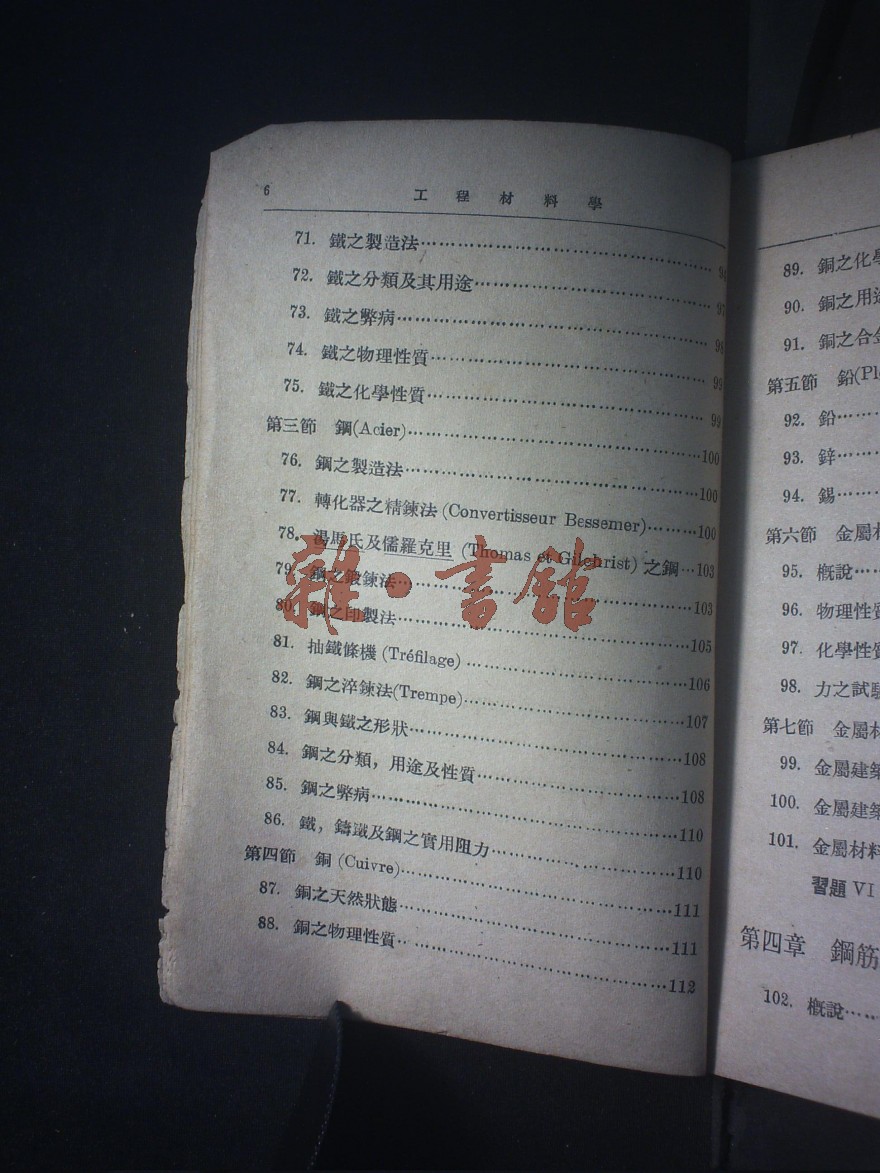 6
工程材料學
71. 鐵之製造法
72. 鐵之分類及其用途 97
73. 鐵之弊病 98
74. 鐵之物理性質 99
75. 鐵之化學性質 99
第三節 鋼(Acier) 100
76. 鋼之製造法 100
77. 轉化器之精鍊法 (Convertisseur Bessemer) 100
78. 湯馬氏及儒羅克里 (Thomas et Gilchrist) 之鋼 103
79. 鋼之鍛鍊法 103
80. 鋼之印製法 105
81. 抽鐵條機 (Tréfilage) 106
82. 鋼之淬鍊法(Trempe) 107
83. 鋼與鐵之形狀 108
84. 鋼之分類，用途及性質 108
85. 鋼之弊病 110
86. 鐵，鑄鐵及鋼之實用阻力 110
第四節 銅 (Cuivre) 111
87. 銅之天然狀態 111
88. 銅之物理性質 112
雜·書館
89. 銅之化學
90. 銅之用途
91. 銅之合金
第五節 鉛(Pl
92. 鉛
93. 鋅
94. 錫
第六節 金屬材
95. 概說
96. 物理性質
97. 化學性質
98. 力之試驗
第七節 金屬材
99. 金屬建築
100. 金屬建築
101. 金屬材料
習題 VI
第四章 鋼筋
102. 概說